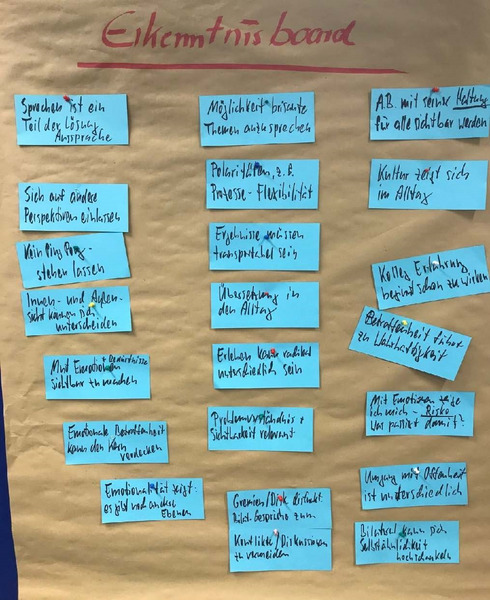 Erkenntnisboard
Sprechen ist ein
Teil der Lösung
Aussprache
Sich auf andere
Perspektiven einlassen
Kein Ping Pong -
stehen lassen
Innen- und Außen-
sicht können sich
unterscheiden
Mut Emotionen + Bedürfnisse
sichtbar zu machen
Emotionale Betroffenheit
kann den Kern
verdecken
Emotionalität zeigt:
es gibt und andere
Ebenen
Möglichkeit brisante
Themen anzusprechen
Polaritäten, z.B.
Prozesse - Flexibilität
Ergebnisse müssen
transparent sein
Übersetzung in
den Alltag
Erleben kann radikal
unterschiedlich sein
Problemverständnis +
Sichtbarkeit relevant
Gremien/Disk
Bilat. Gespräche zum
Konflikte/Diskussionen
zu vermeiden
A.B. mit seiner Haltung
für alle sichtbar werden
Kultur zeigt sich
im Alltag
Kolleg. Erfahrung
beginnt schon zu wirken
Betroffenheit führt
zu Wahrhaftigkeit
Mit Emotionen zeige
ich mich - Risiko
was passiert damit?
Umgang mit Offenheit
ist unterschiedlich
Bilateral kann sich
Selbstähnlichkeit
hochschaukeln